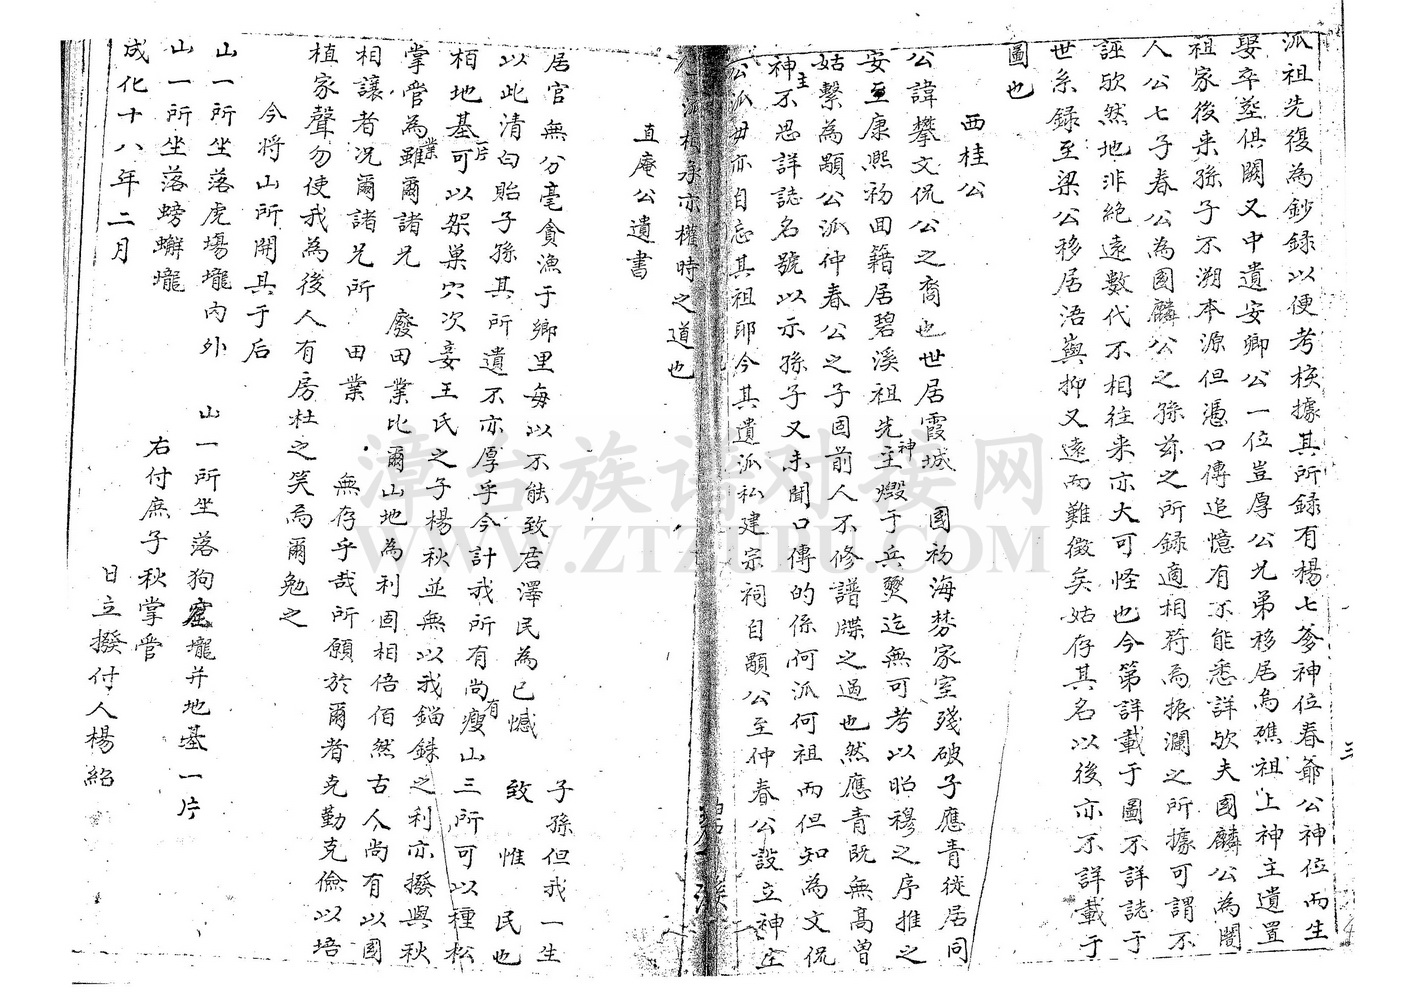 派祖先復為鈔録以便考核據其所録有楊七爹神位春爺公神位而生
娶卒塟俱闕又中遺安卿公一位豈厚公兄弟移居烏礁祖上神主遺置
祖家後来孫子不溯本源但憑口傳追憶有不能悉詳欤夫國麟公為閣
人公七子春公為國麟公之孫茲之所録適相符為振瀾之所據可謂不
誣欤然地非絶遠數代不相往来亦大可怪也今第詳載于圖不詳誌于
世系録至梁公移居浯嶼抑又遠而難徵矣姑存其名以後亦不詳載于
圖也
西桂公
公諱攀文侃公之裔也世居霞城 國初海棼家室殘破子應青徙居同
安至康熙初回籍居碧溪祖先神主燬于兵燹迄無可考以昭穆之序推之
姑繫為顯公派仲春公之子固前人不修譜牒之過也然應青既無高曾
神主不思詳誌名號以示孫子又未聞口傳的係何派何祖而但知為文侃
公派毋亦自忘其祖耶今其遺派私建宗祠自顯公至仲春公設立神主
派相承亦權時之道也
直庵公遺書
子孫但我一生
居官無分毫貪漁于鄉里每以不能致君澤民為已憾 致 惟 民也
以此清白貽子孫其所遺不亦厚乎今計我所有尚有瘦山三所可以種松
栢地基一片可以架巢穴次妾王氏之子楊秋並無以我錙銖之利亦撥與秋
掌管為業雖爾諸兄 廢田業比爾山地為利固相倍佰然古人尚有以國
相讓者况爾諸兄所 田業 無存乎哉所願於爾者克勤克儉以培
植家聲勿使我為後人有房杜之笑焉爾勉之
今將山所開具于后
山一所坐落虎塲壠內外 山一所坐落狗窟壠并地基一片
山一所坐落螃蠏壠 右付庶子秋掌管
成化十八年二月 日立撥付人楊紹
碧
溪
三
漳台族谱对接网
WWW.ZTZUPU.COM